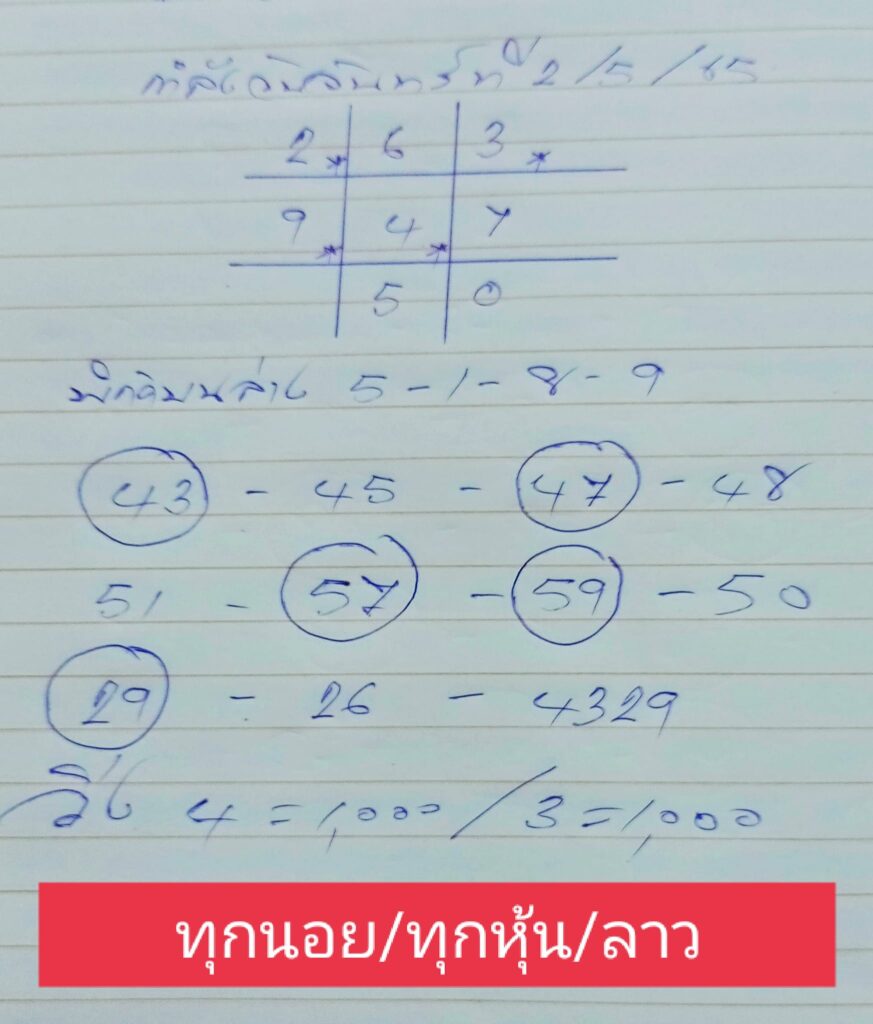 กำลังวันจันทร์ที่ 2/5/65
2 * 6 3 *
9 * 4 * 7
5 0
พิกัดบนล่าง 5-1-8-9
43 - 45 - 47 - 48
51 - 57 - 59 - 50
29 - 26 - 4329
วิ่ง 4 = 1,000 / 3 = 1,000
ทุกนอย/ทุกหุ้น/ลาว